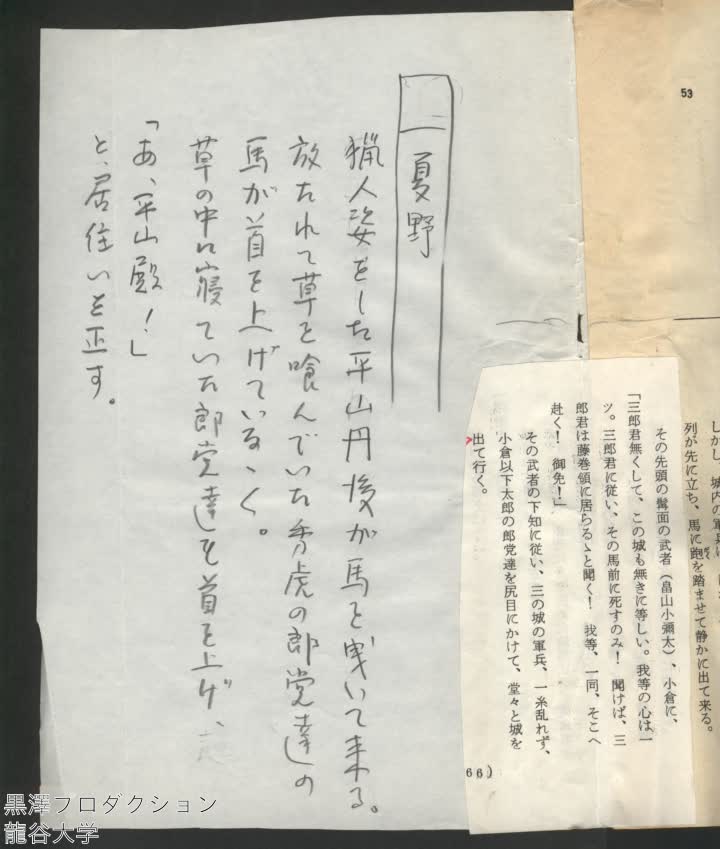 53
しかし、城内の軍兵は
列が先に立ち、馬に跑を踏ませて静かに出て来る。
その先頭の髯面の武者（畠山小彌太）、小倉に、
「三郎君無くして、この城も無きに等しい。我等の心は一
ツ。三郎君に従い、その馬前に死すのみ！　聞けば、三
郎君は藤巻領に居らるゝと聞く！　我等、一同、そこへ
赴く！　御免！」
その武者の下知に従い、三の城の軍兵、一糸乱れず、
小倉以下太郎の郎党達を尻目にかけて、堂々と城を
出て行く。
66)
一　夏野
猟人姿をした平山丹後が馬を曳いて来る。
放たれて草を喰んでいた秀虎の郎党達の
馬が首を上げていなゝく。
草の中に寝ていた郎党達も首を上げ、
「あ、平山殿！」
と、居住いを正す。
黒澤プロダクション
龍谷大学